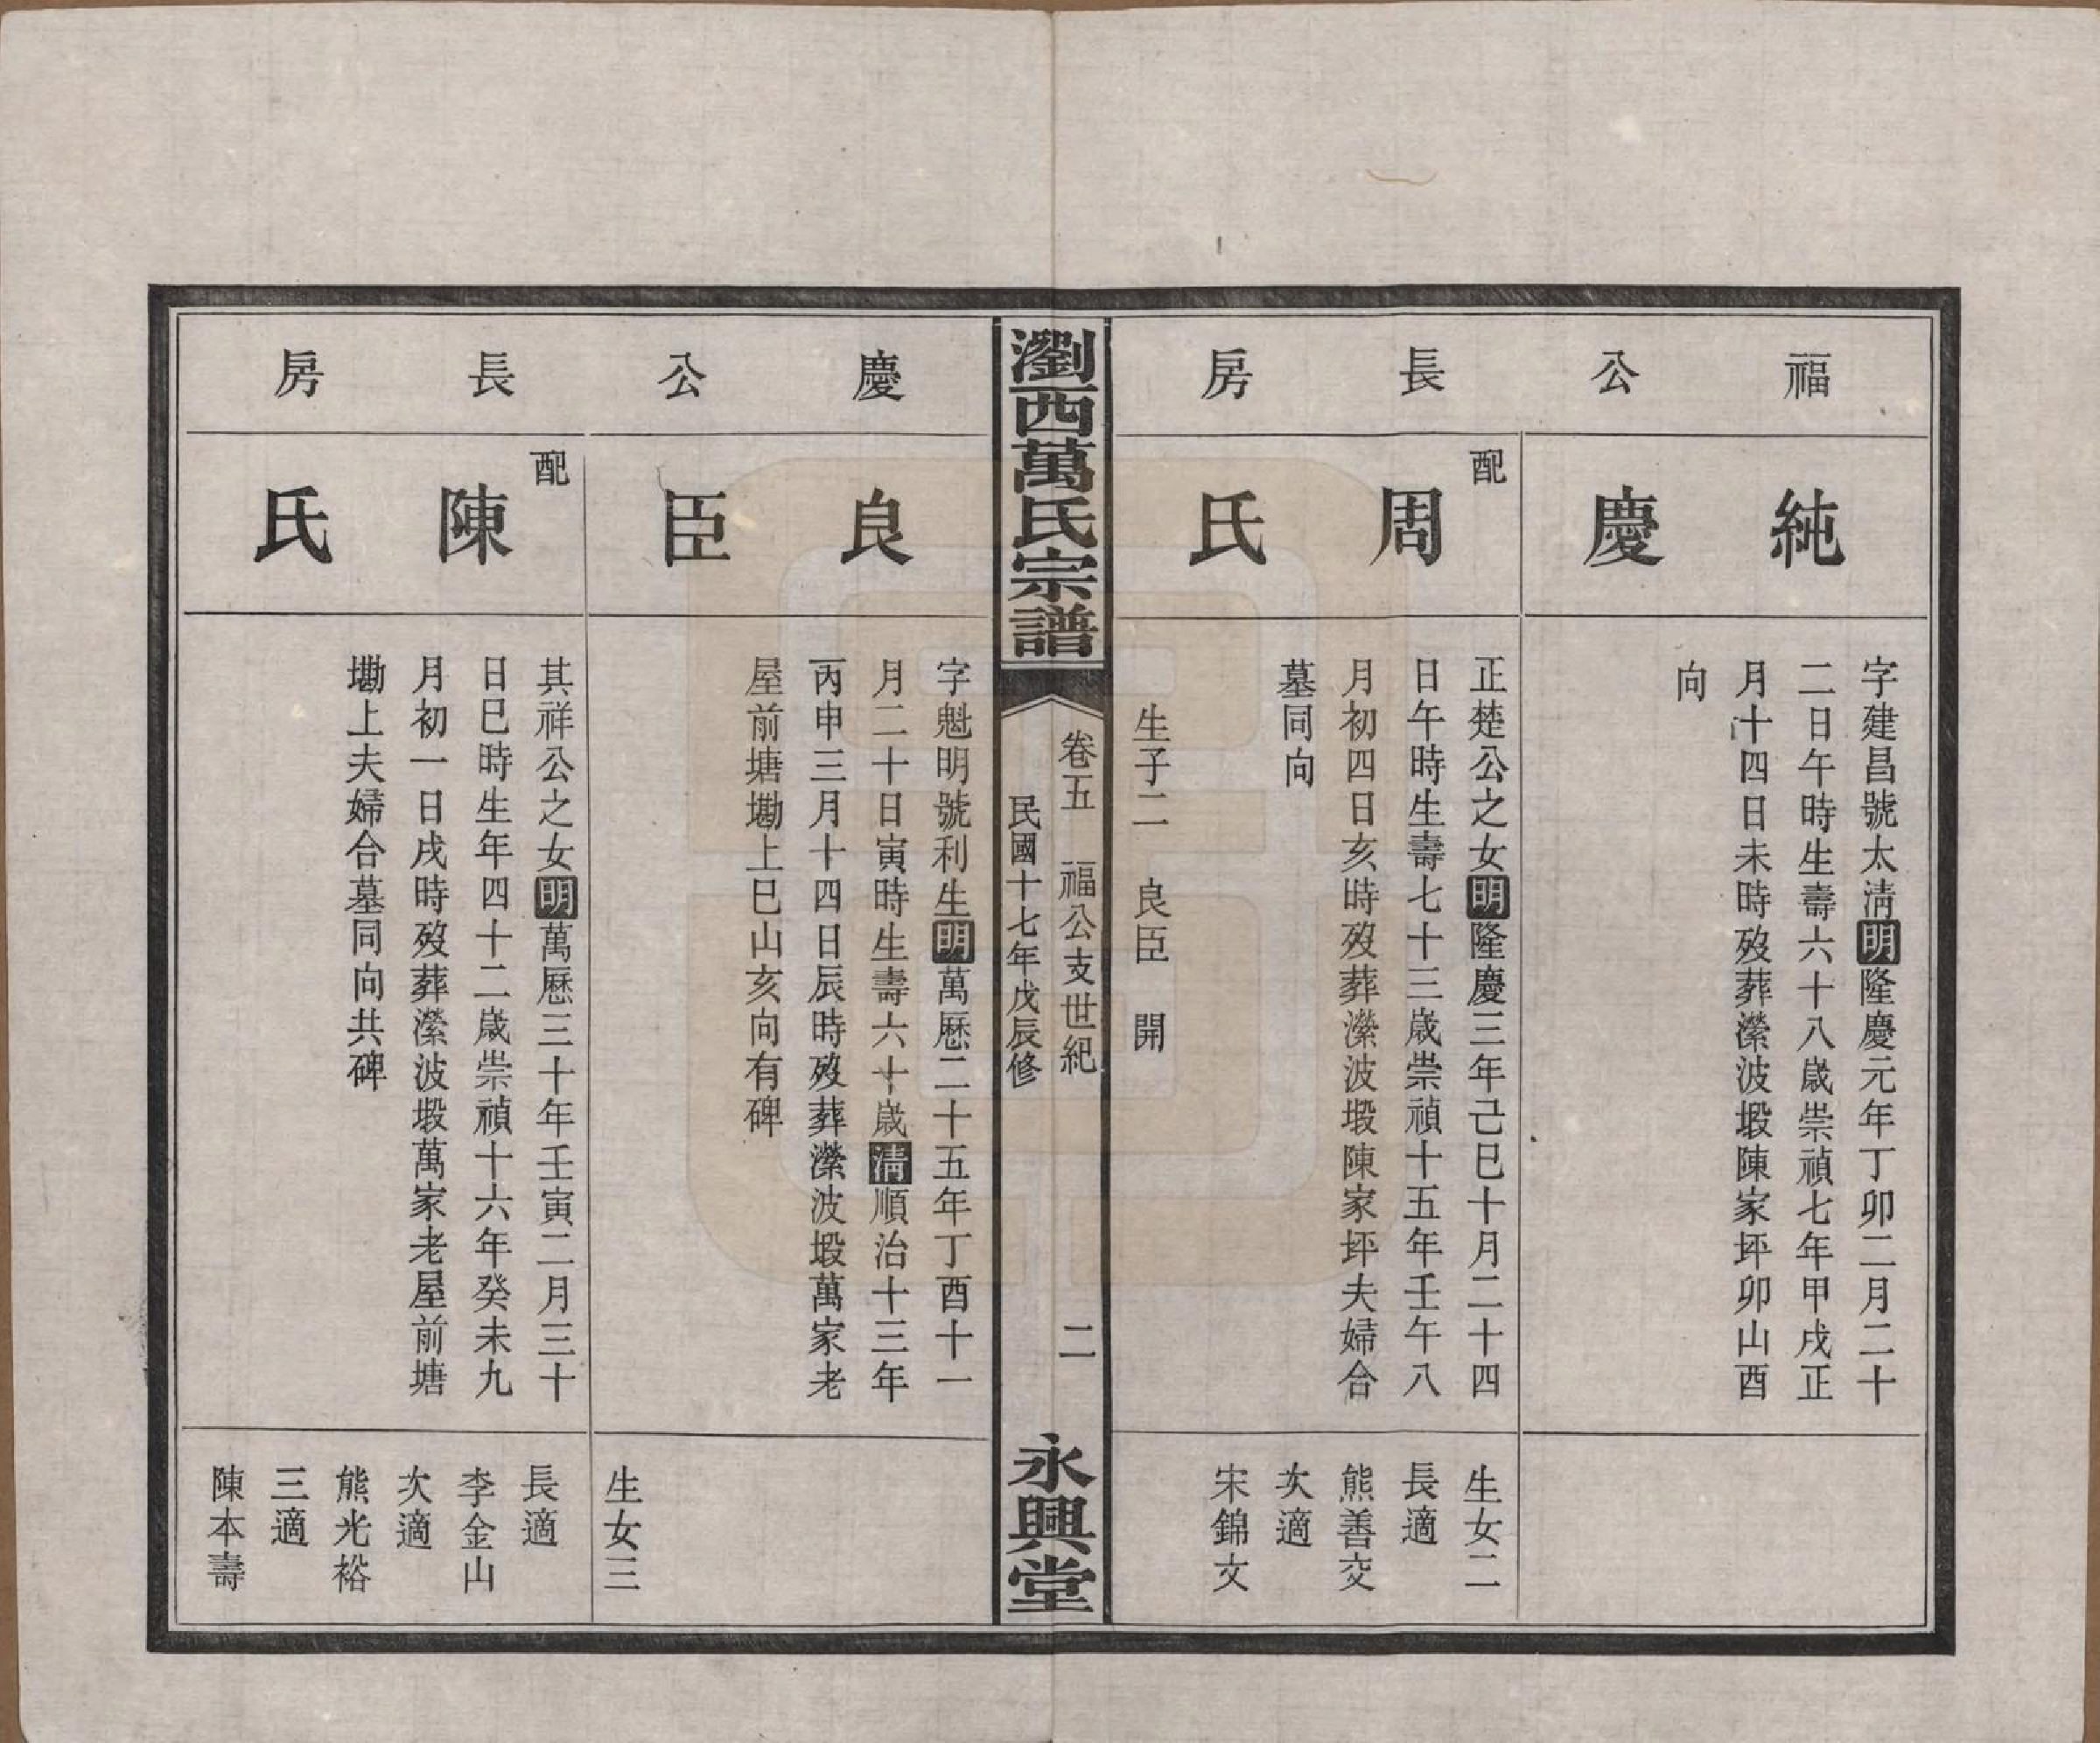 福公長房
純慶
字建昌號太清明隆慶元年丁卯二月二十
二日午時生壽六十八歲崇禎七年甲戌正
月十四日未時歿葬瀠波塅陳家坪卯山酉
向
配
周氏
正楚公之女明隆慶三年己巳十月二十四
日午時生壽七十三歲崇禎十五年壬午八
月初四日亥時歿葬瀠波塅陳家坪夫婦合
墓同向
生子二 良臣 開
生女二
長適
熊善交
次適
宋錦文
瀏西萬氏宗譜
卷五 福公支世紀 二
民國十七年戊辰修
永興堂
慶公長房
良臣
字魁明號利生明萬歷二十五年丁酉十一
月二十日寅時生壽六十歲清順治十三年
丙申三月十四日辰時歿葬瀠波塅萬家老
屋前塘墈上巳山亥向有碑
生女三
配
陳氏
其祥公之女明萬歷三十年壬寅二月三十
日巳時生年四十二歲崇禎十六年癸未九
月初一日戌時歿葬瀠波塅萬家老屋前塘
墈上夫婦合墓同向共碑
長適
李金山
次適
熊光裕
三適
陳本壽